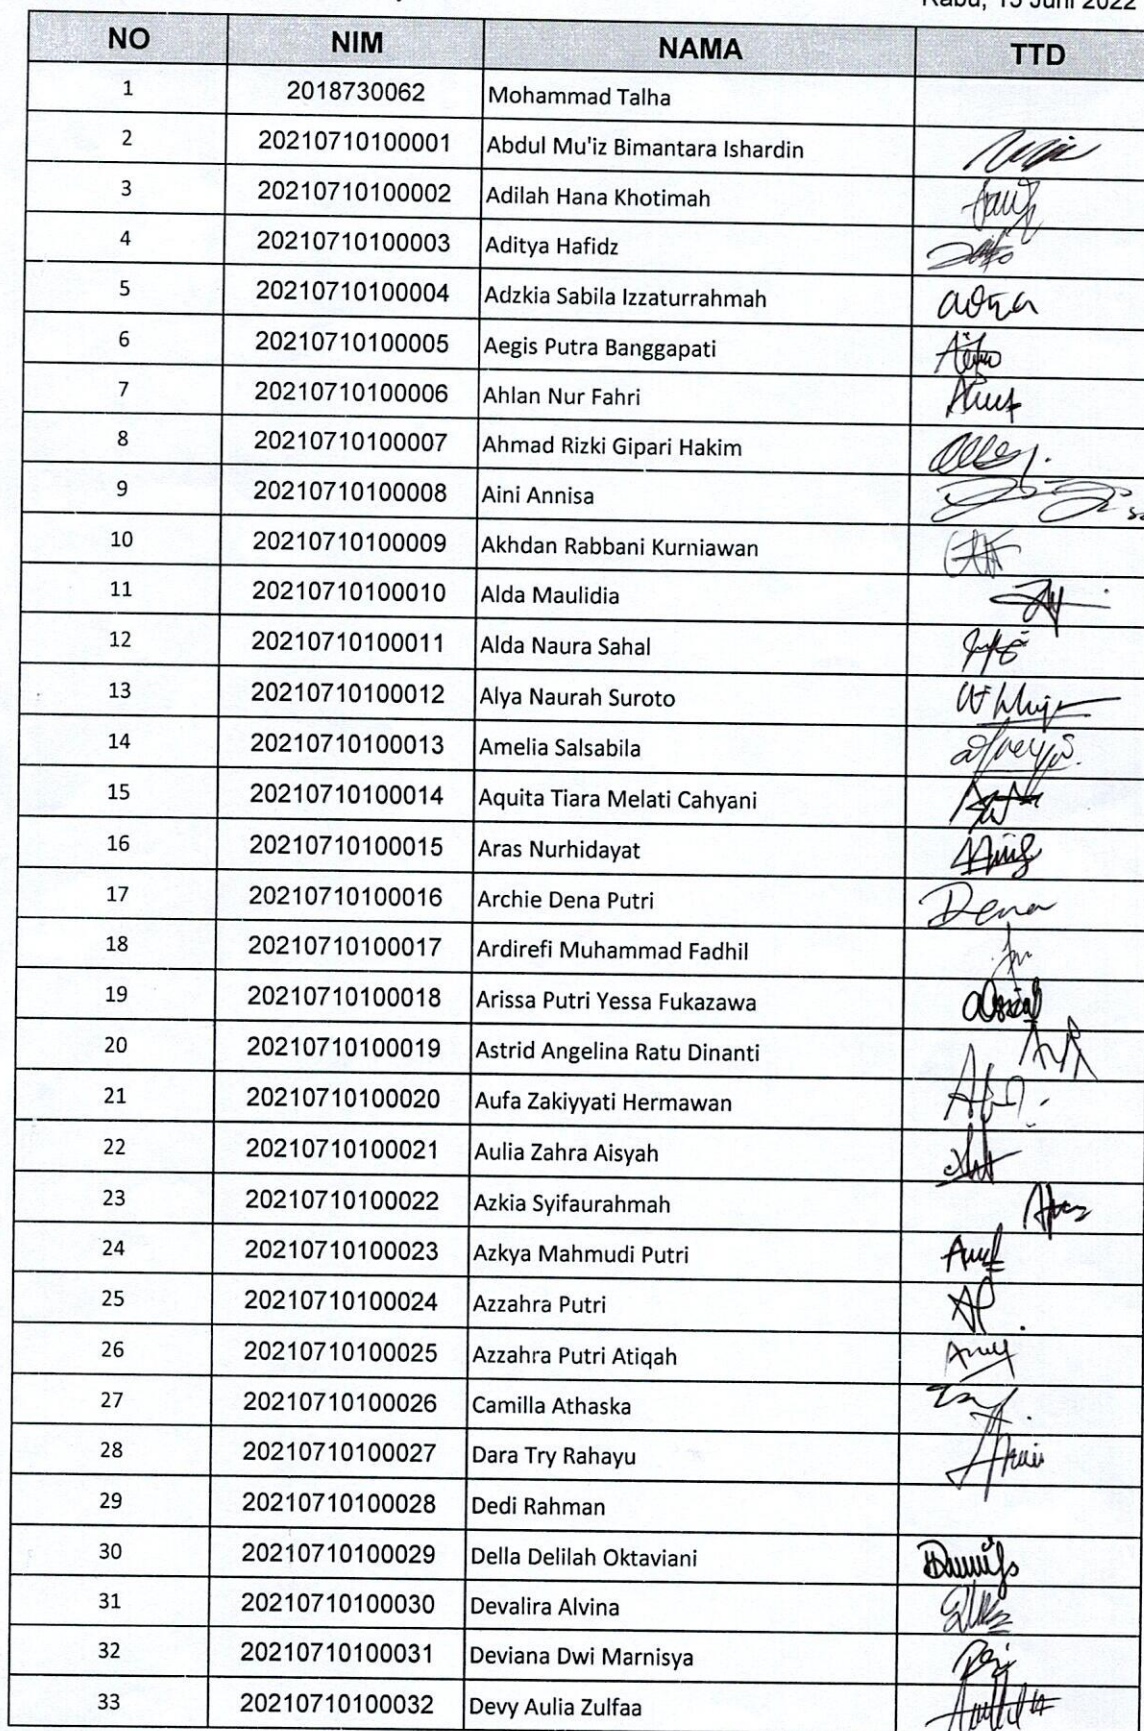 Rabu, 15 Juni 2022
NO NIM NAMA TTD
1 2018730062 Mohammad Talha
2 20210710100001 Abdul Mu'iz Bimantara Ishardin
3 20210710100002 Adilah Hana Khotimah
4 20210710100003 Aditya Hafidz
5 20210710100004 Adzkia Sabila Izzaturrahmah
6 20210710100005 Aegis Putra Banggapati
7 20210710100006 Ahlan Nur Fahri
8 20210710100007 Ahmad Rizki Gipari Hakim
9 20210710100008 Aini Annisa
10 20210710100009 Akhdan Rabbani Kurniawan
11 20210710100010 Alda Maulidia
12 20210710100011 Alda Naura Sahal
13 20210710100012 Alya Naurah Suroto
14 20210710100013 Amelia Salsabila
15 20210710100014 Aquita Tiara Melati Cahyani
16 20210710100015 Aras Nurhidayat
17 20210710100016 Archie Dena Putri Dena
18 20210710100017 Ardirefi Muhammad Fadhil
19 20210710100018 Arissa Putri Yessa Fukazawa
20 20210710100019 Astrid Angelina Ratu Dinanti
21 20210710100020 Aufa Zakiyyati Hermawan
22 20210710100021 Aulia Zahra Aisyah
23 20210710100022 Azkia Syifaurahmah
24 20210710100023 Azkya Mahmudi Putri
25 20210710100024 Azzahra Putri
26 20210710100025 Azzahra Putri Atiqah
27 20210710100026 Camilla Athaska
28 20210710100027 Dara Try Rahayu
29 20210710100028 Dedi Rahman
30 20210710100029 Della Delilah Oktaviani
31 20210710100030 Devalira Alvina
32 20210710100031 Deviana Dwi Marnisya
33 20210710100032 Devy Aulia Zulfaa